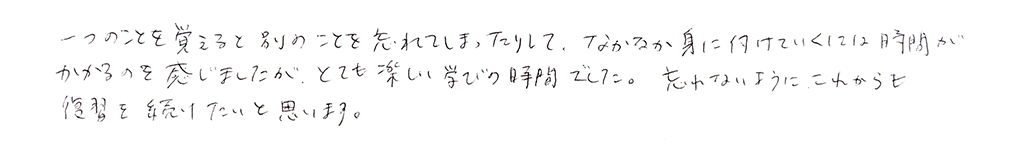 一つのことを覚えると別のことを忘れてしまったりして、なかなか身に付けていくには時間が
かかるのを感じましたが、とても楽しい学びの時間でした。忘れないように、これからも
復習を続けたいと思います。